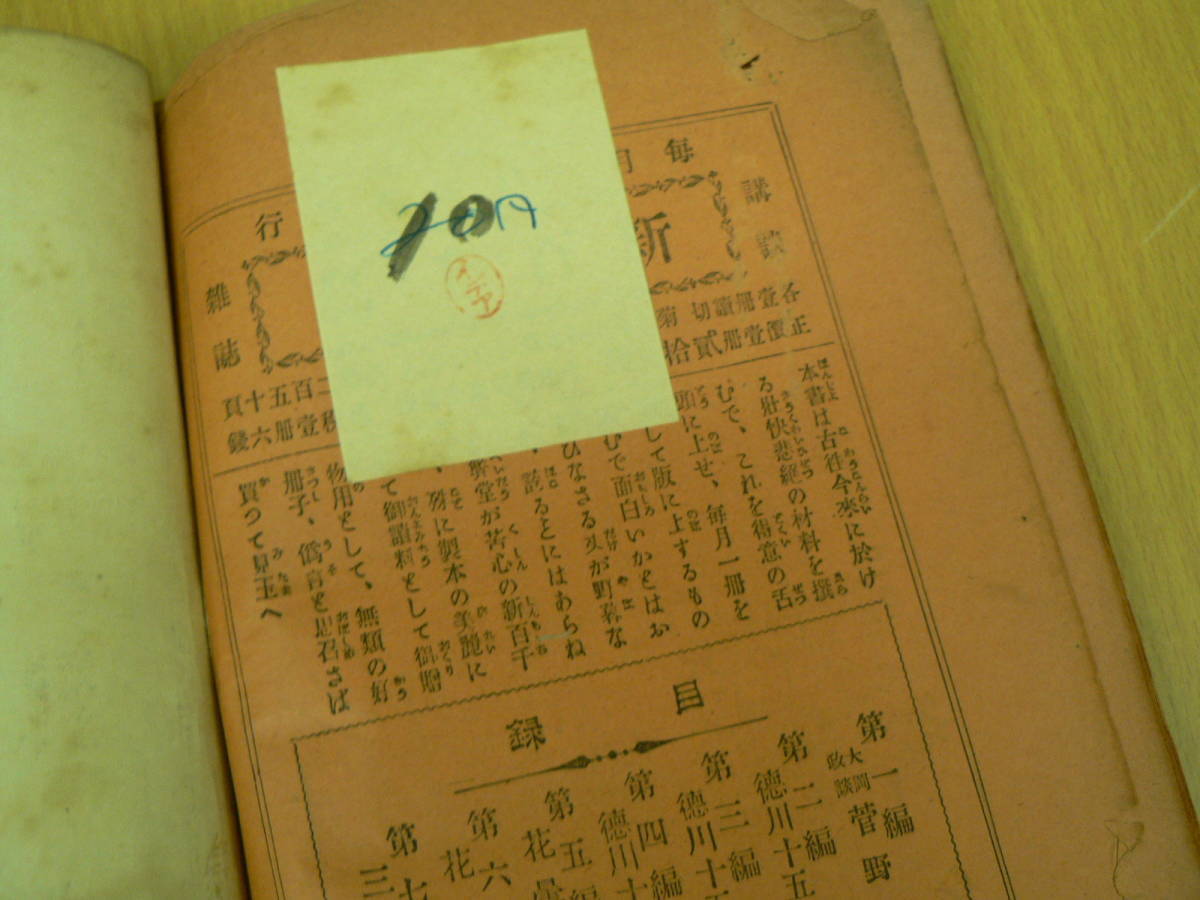 毎月
行
講談
新
雜誌
各壹册讀切菊
二百五十頁
正價壹册貳拾
税壹册六錢
本書は古往今來に於け
る壯快悲絶の材料を撰
むで、これを得意の舌
頭に上せ、毎月一册を
して版に上するもの
むで面白いかとはお
ひなさる丈が野暮な
誇るとにはあらね
堂が苦心の新百千
殊に製本の美麗に
て御讀料として御贈
物用として、無類の好
册子、僞言と思召さば
買つて見玉へ
目録
第一編
大岡政談 菅野
第二編
德川十五
第三編
德川十五
第四編
德川十
第五編
花
第六
花
第七
三
10